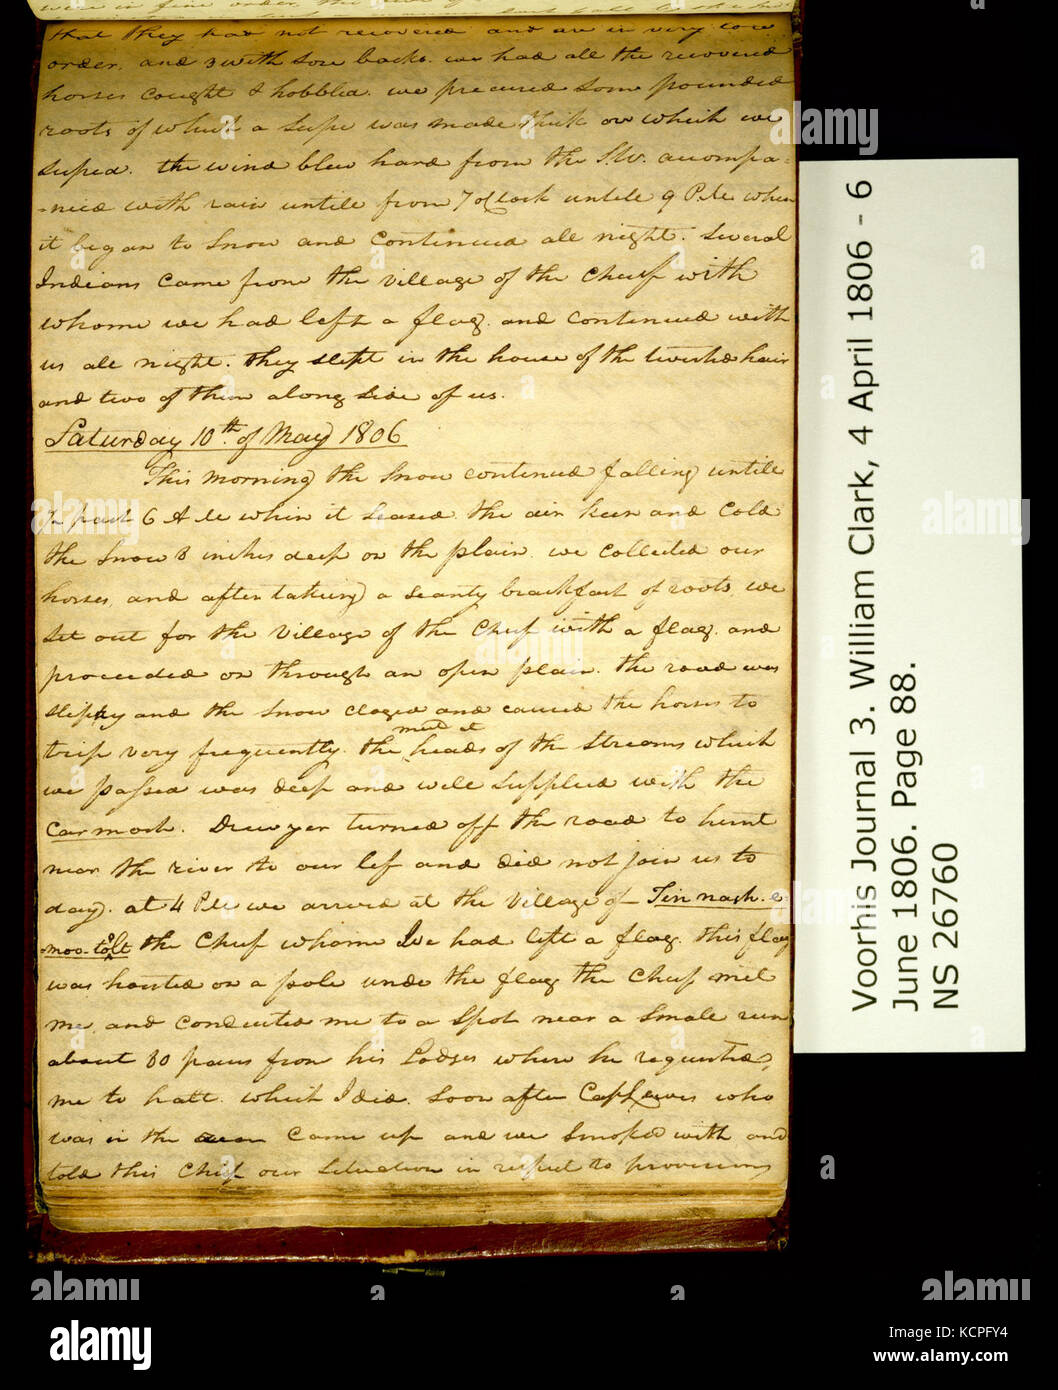 that they had not recovered and are in very low
order. and 3 with Sore backs. we had all the recovered
horses Cought & hobbled. we precured Some pounded
roots of which a Supe was made thick on which we
Suped. the wind blew hard from the S.W. accompa=
-nied with rain untill from 7 oClock untill 9 P.M. when
it began to Snow and continued all night. Several
Indians came from the village of the Chief with
whome we had left a flag and continued with
us all night. they slept in the house of the twisted hair
and two of them along side of us.
Saturday 10th of May 1806
This morning the Snow continued falling untill
½ past 6 A M when it seased. the air keen and cold
the Snow 8 inches deep on the plain. we collected our
horses and after taking a scanty brackfast of roots, we
set out for the Village of the Chief with a flag. and
proceeded on through an open plain. the road was
slipery and the Snow cloged and caused the horses to
trip very frequently. the mud at heads of the Streams which
we passed was deep and well Supplied with the
Carmosh. Drewyer turned off the road to hunt
near the river to our lef and did not join us to
day. at 4 P M we arrived at the Village of Tin nach-e-
moo-tolt the Chief whome We had left a flag. this flag
was hoisted on a pole unde the flag the Chief met
me and conducted me to a Spot near a Small run
about 80 paces from his Lodges where he requested
me to halt which I did. Soon after Capt Lewis who
was in the rear came up and we Smoked with and
told this Chief our Situation in respect to provisions
Voorhis Journal 3. William Clark, 4 April 1806 - 6
June 1806. Page 88.
NS 26760
alamy
Image ID: KCPFY4
www.alamy.com